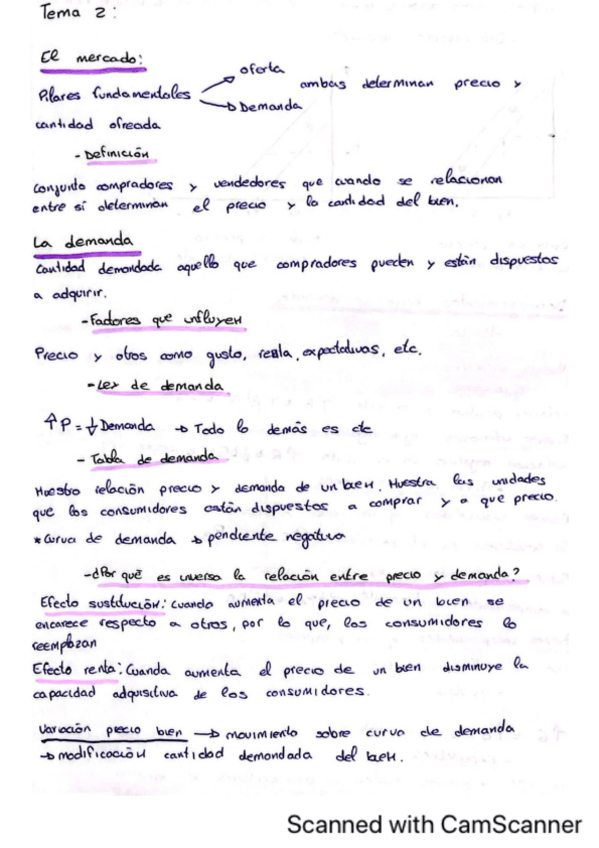 Tema 2:
El mercado:
oferta
Pilares fundamentales
ambas determinan precio y
Demanda
cantidad ofreada
- Definición
Conjunto compradores y vendedores que cuando se relacionan
entre sí determinan el precio y la cantidad del bien.
La demanda
Cantidad demandada aquello que compradores pueden y están dispuestos
a adquirir.
- Factores que influyen
Precio y otros como gusto, renta, expectativas, etc.
- Ley de demanda
↑P = ↓Demanda → Todo lo demás es cte
- Tabla de demanda
Muestra relación precio y demanda de un bien. Muestra las unidades
que los consumidores están dispuestos a comprar y a qué precio.
* Curva de demanda → pendiente negativa
- ¿Por qué es inversa la relación entre precio y demanda?
Efecto sustitución: Cuando aumenta el precio de un bien se
encarece respecto a otros, por lo que, los consumidores lo
reemplazan
Efecto renta: Cuando aumenta el precio de un bien disminuye la
capacidad adquisitiva de los consumidores.
Variación precio bien → movimiento sobre curva de demanda
→ modificación cantidad demandada del bien.
Scanned with CamScanner